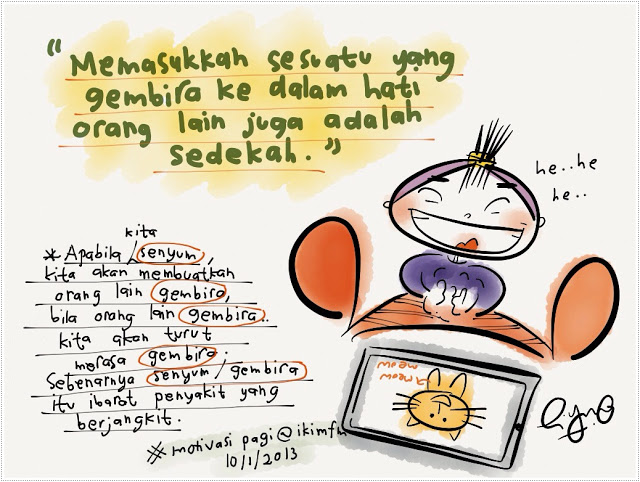 "Memasukkah sesuatu yang
gembira ke dalam hati
orang lain juga adalah
sedekah."
he..he
he..
kita
* Apabila / senyum,
kita akan membuatkan
orang lain gembira,
bila orang lain gembira..
kita akan turut
merasa gembira;
Sebenarnya senyum / gembira
itu ibarat penyakit yang
berjangkit.
meow
meow
* motivasi pagi @ ikimfm
10/1/2013